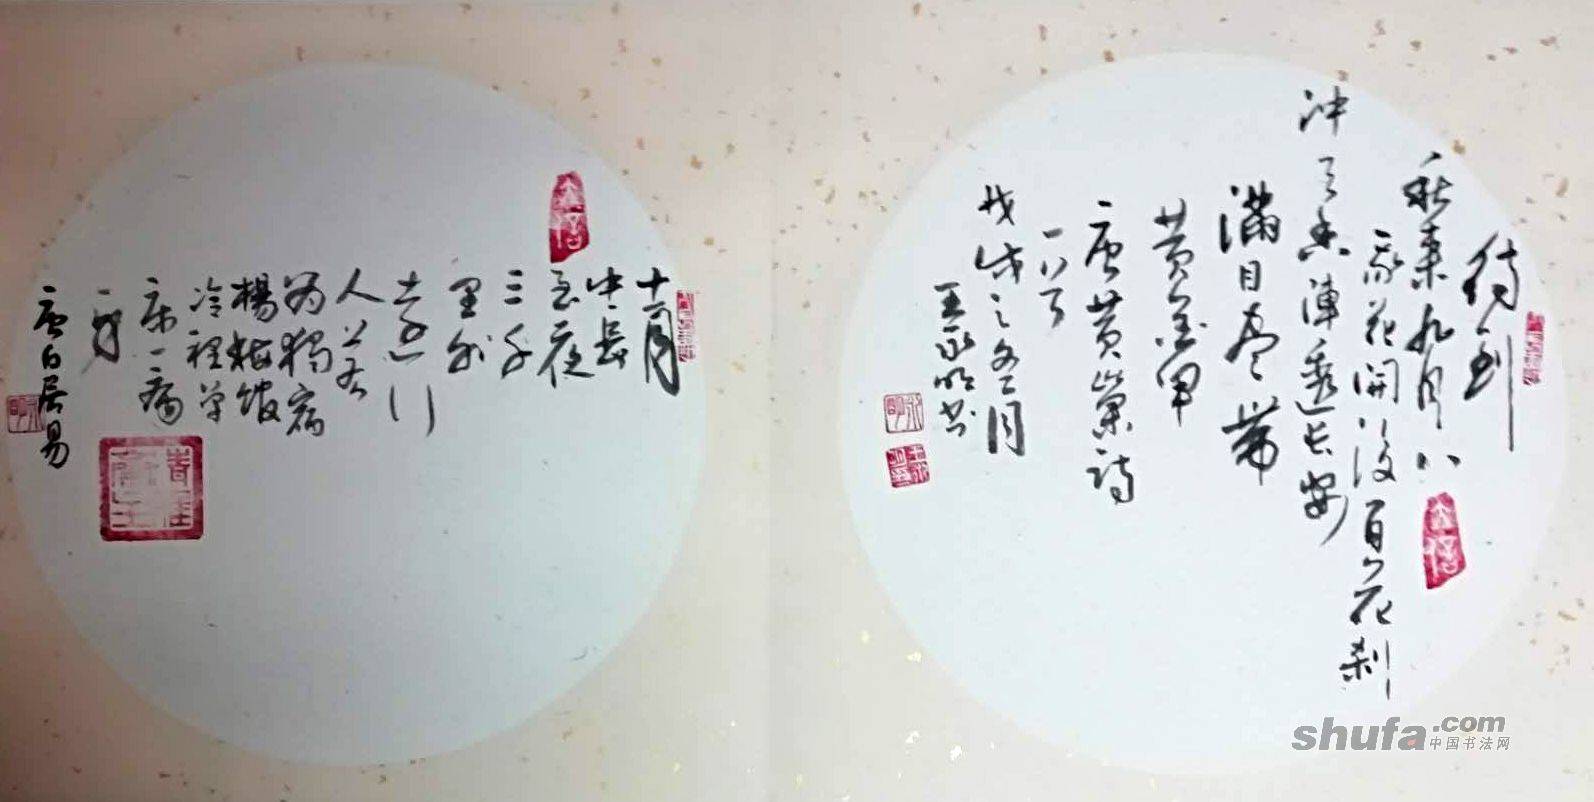 待到
秋来九月八
我花開後百花刹
冲天香陣透长安
满目盡带
黄金甲
唐黄巢詩
一首
戊戌之冬月
王永明书
十一月
中長
至夜
三千
里外
遠行
人若
为獨宿
楊梅館
冷枕单
床一病
身
唐白居易
shufa.com
中国书法网